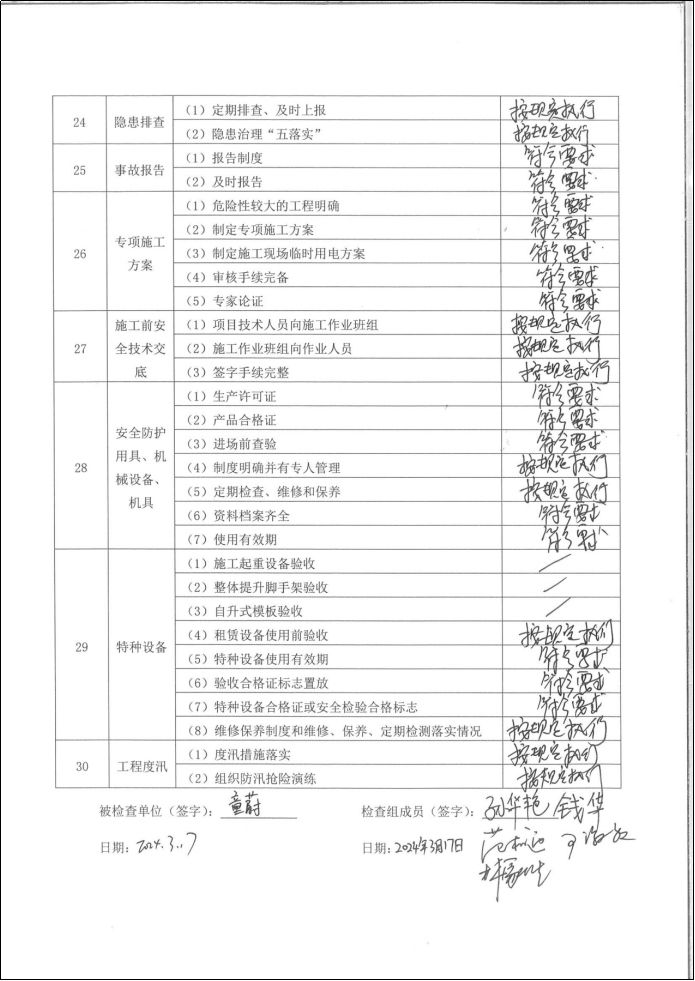 24 隐患排查 （1）定期排查、及时上报 按规定执行
（2）隐患治理“五落实” 按规定执行
25 事故报告 （1）报告制度 符合要求
（2）及时报告 符合要求
26 专项施工方案 （1）危险性较大的工程明确 符合要求
（2）制定专项施工方案 符合要求
（3）制定施工现场临时用电方案 符合要求
（4）审核手续完备 符合要求
（5）专家论证 符合要求
27 施工前安全技术交底 （1）项目技术人员向施工作业班组 按规定执行
（2）施工作业班组向作业人员 按规定执行
（3）签字手续完整 按规定执行
28 安全防护用具、机械设备、机具 （1）生产许可证 符合要求
（2）产品合格证 符合要求
（3）进场前查验 符合要求
（4）制度明确并有专人管理 按规定执行
（5）定期检查、维修和保养 按规定执行
（6）资料档案齐全 符合要求
（7）使用有效期 符合要求
29 特种设备 （1）施工起重设备验收 /
（2）整体提升脚手架验收 /
（3）自升式模板验收 /
（4）租赁设备使用前验收 按规定执行
（5）特种设备使用有效期 符合要求
（6）验收合格证标志置放 符合要求
（7）特种设备合格证或安全检验合格标志 符合要求
（8）维修保养制度和维修、保养、定期检测落实情况 按规定执行
30 工程度汛 （1）度汛措施落实 按规定执行
（2）组织防汛抢险演练 按规定执行
被检查单位（签字）：童蔚 检查组成员（签字）：孙华艳 钱华
日期：2024.3.17 日期：2024年3月17日